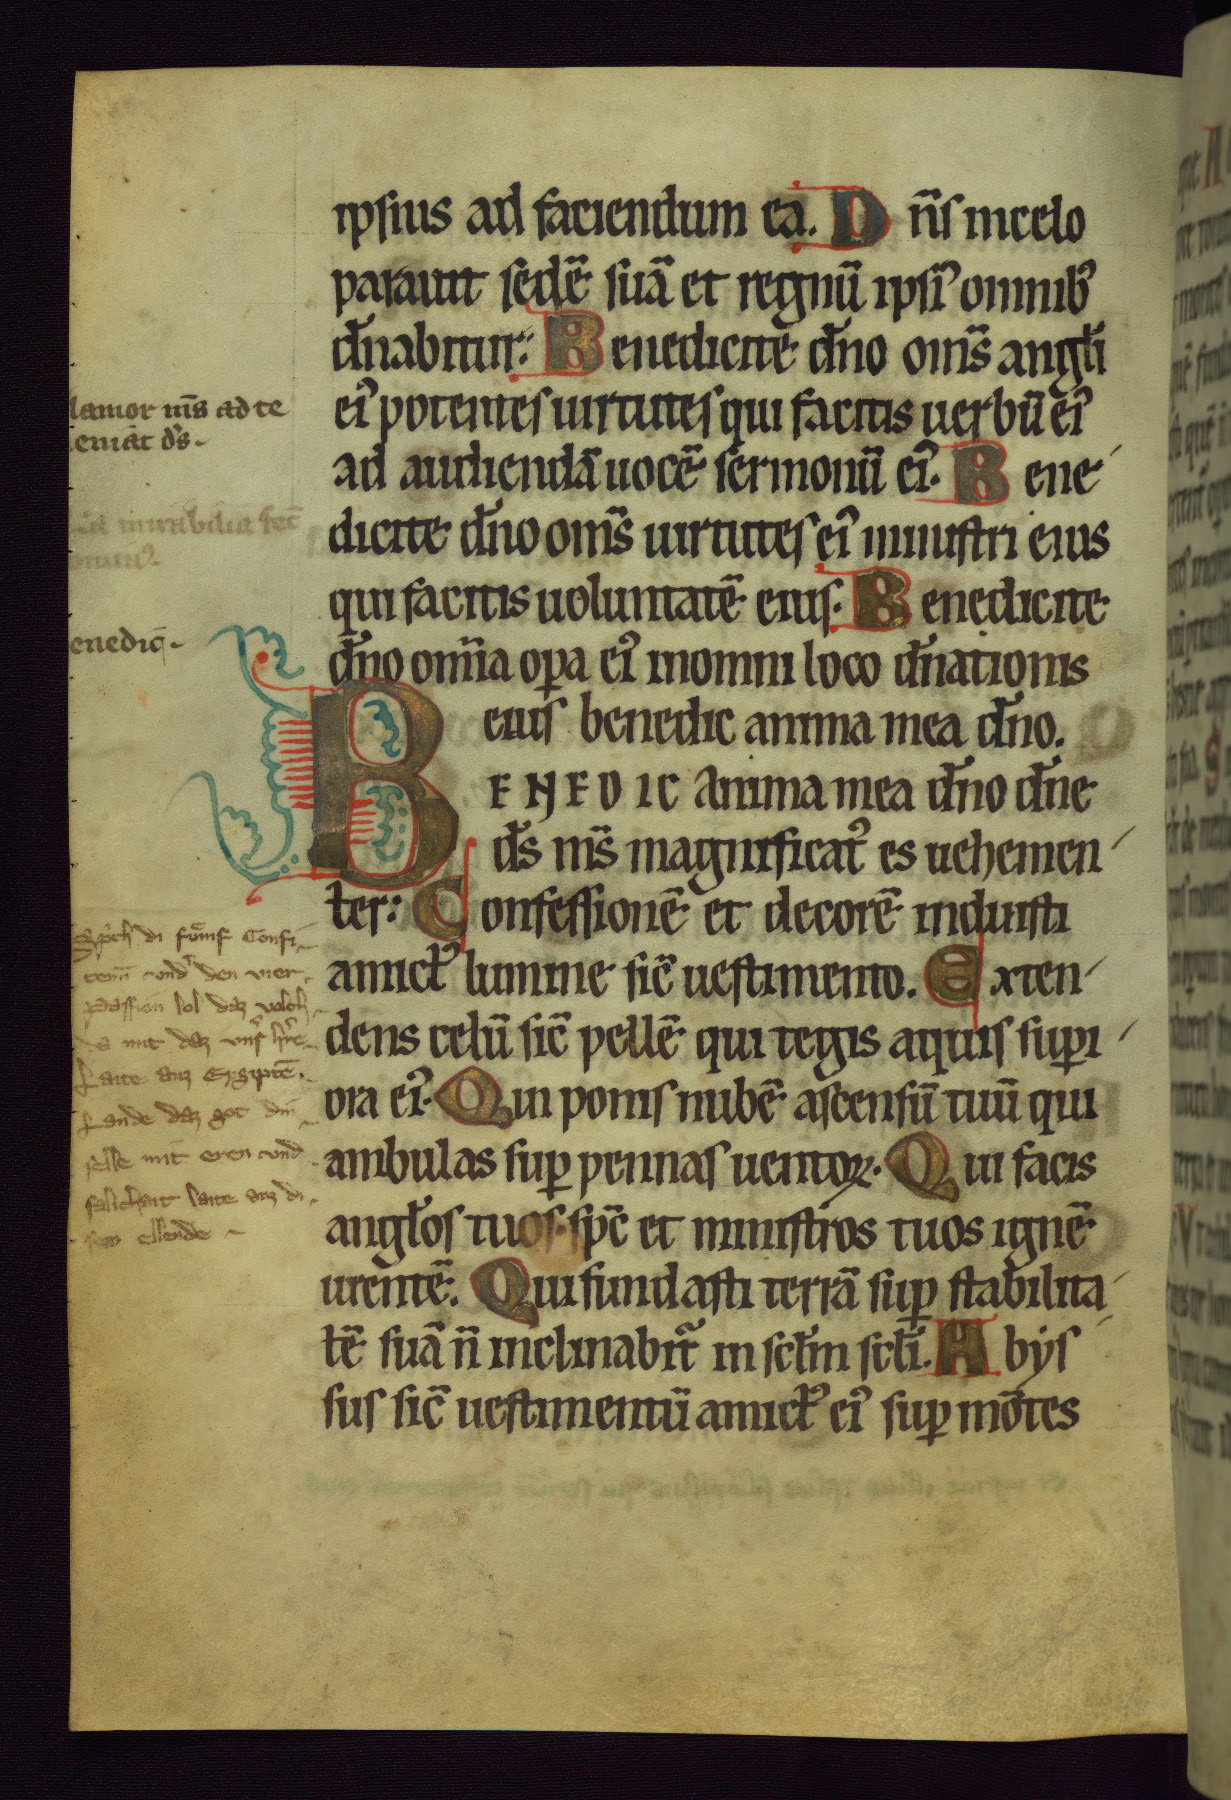 ipsius ad faciendum ea. D n̄s in celo
parauit sedē suā et regnū ipsi᾽ omnib᾽
dn̄abitur: B enedicite dn̄o om̄s angl̄i
ei᾽ potentes uirtutes qui facitis uerbū ei᾽
ad audiendā uocē sermonū ei᾽. B ene
dicite dn̄o om̄s uirtutes ei᾽ ministri eius
qui facitis uoluntatē eius. B enedicite
dn̄o om̄ia op̄a ei᾽ in omni loco dn̄ationis
eius benedic anima mea dn̄o.
B ENEDIC Anima mea dn̄o dn̄e
ds̄ ms̄ magnificat᾽ es uehemen
ter: C onfessionē et decorē induisti
amict᾽ lumine sic̄ uestimento. E xten
dens celū sic̄ pellē qui tegis aquis sup̄i
ora ei᾽. Q ui ponis nubē ascensū tuū qui
ambulas sup̄ pennas uentoꝝ. Q ui facis
angl̄os tuos sp̄c et ministros tuos ignē
urentē. Q ui fundasti terrā sup̄ stabilita
tē suā n̄ inclinabit᾽ in sclm̄ scl̄i. A bys
sus sic̄ uestimentū amict᾽ ei᾽ sup̄ mōtes
lamor ms̄ ad te
eniat ds̄
mirabilia fec̄
enedic̄
Sp̄ch di fūmf Confi
tem̄ vnd᾽ den vier
passion sol daz volch
da mit daz vnſ᾽ hr̄e
Laite auz Egiptē.
Lande daz got
selle mit eren vnd
salichait laite auz di
sem ellende